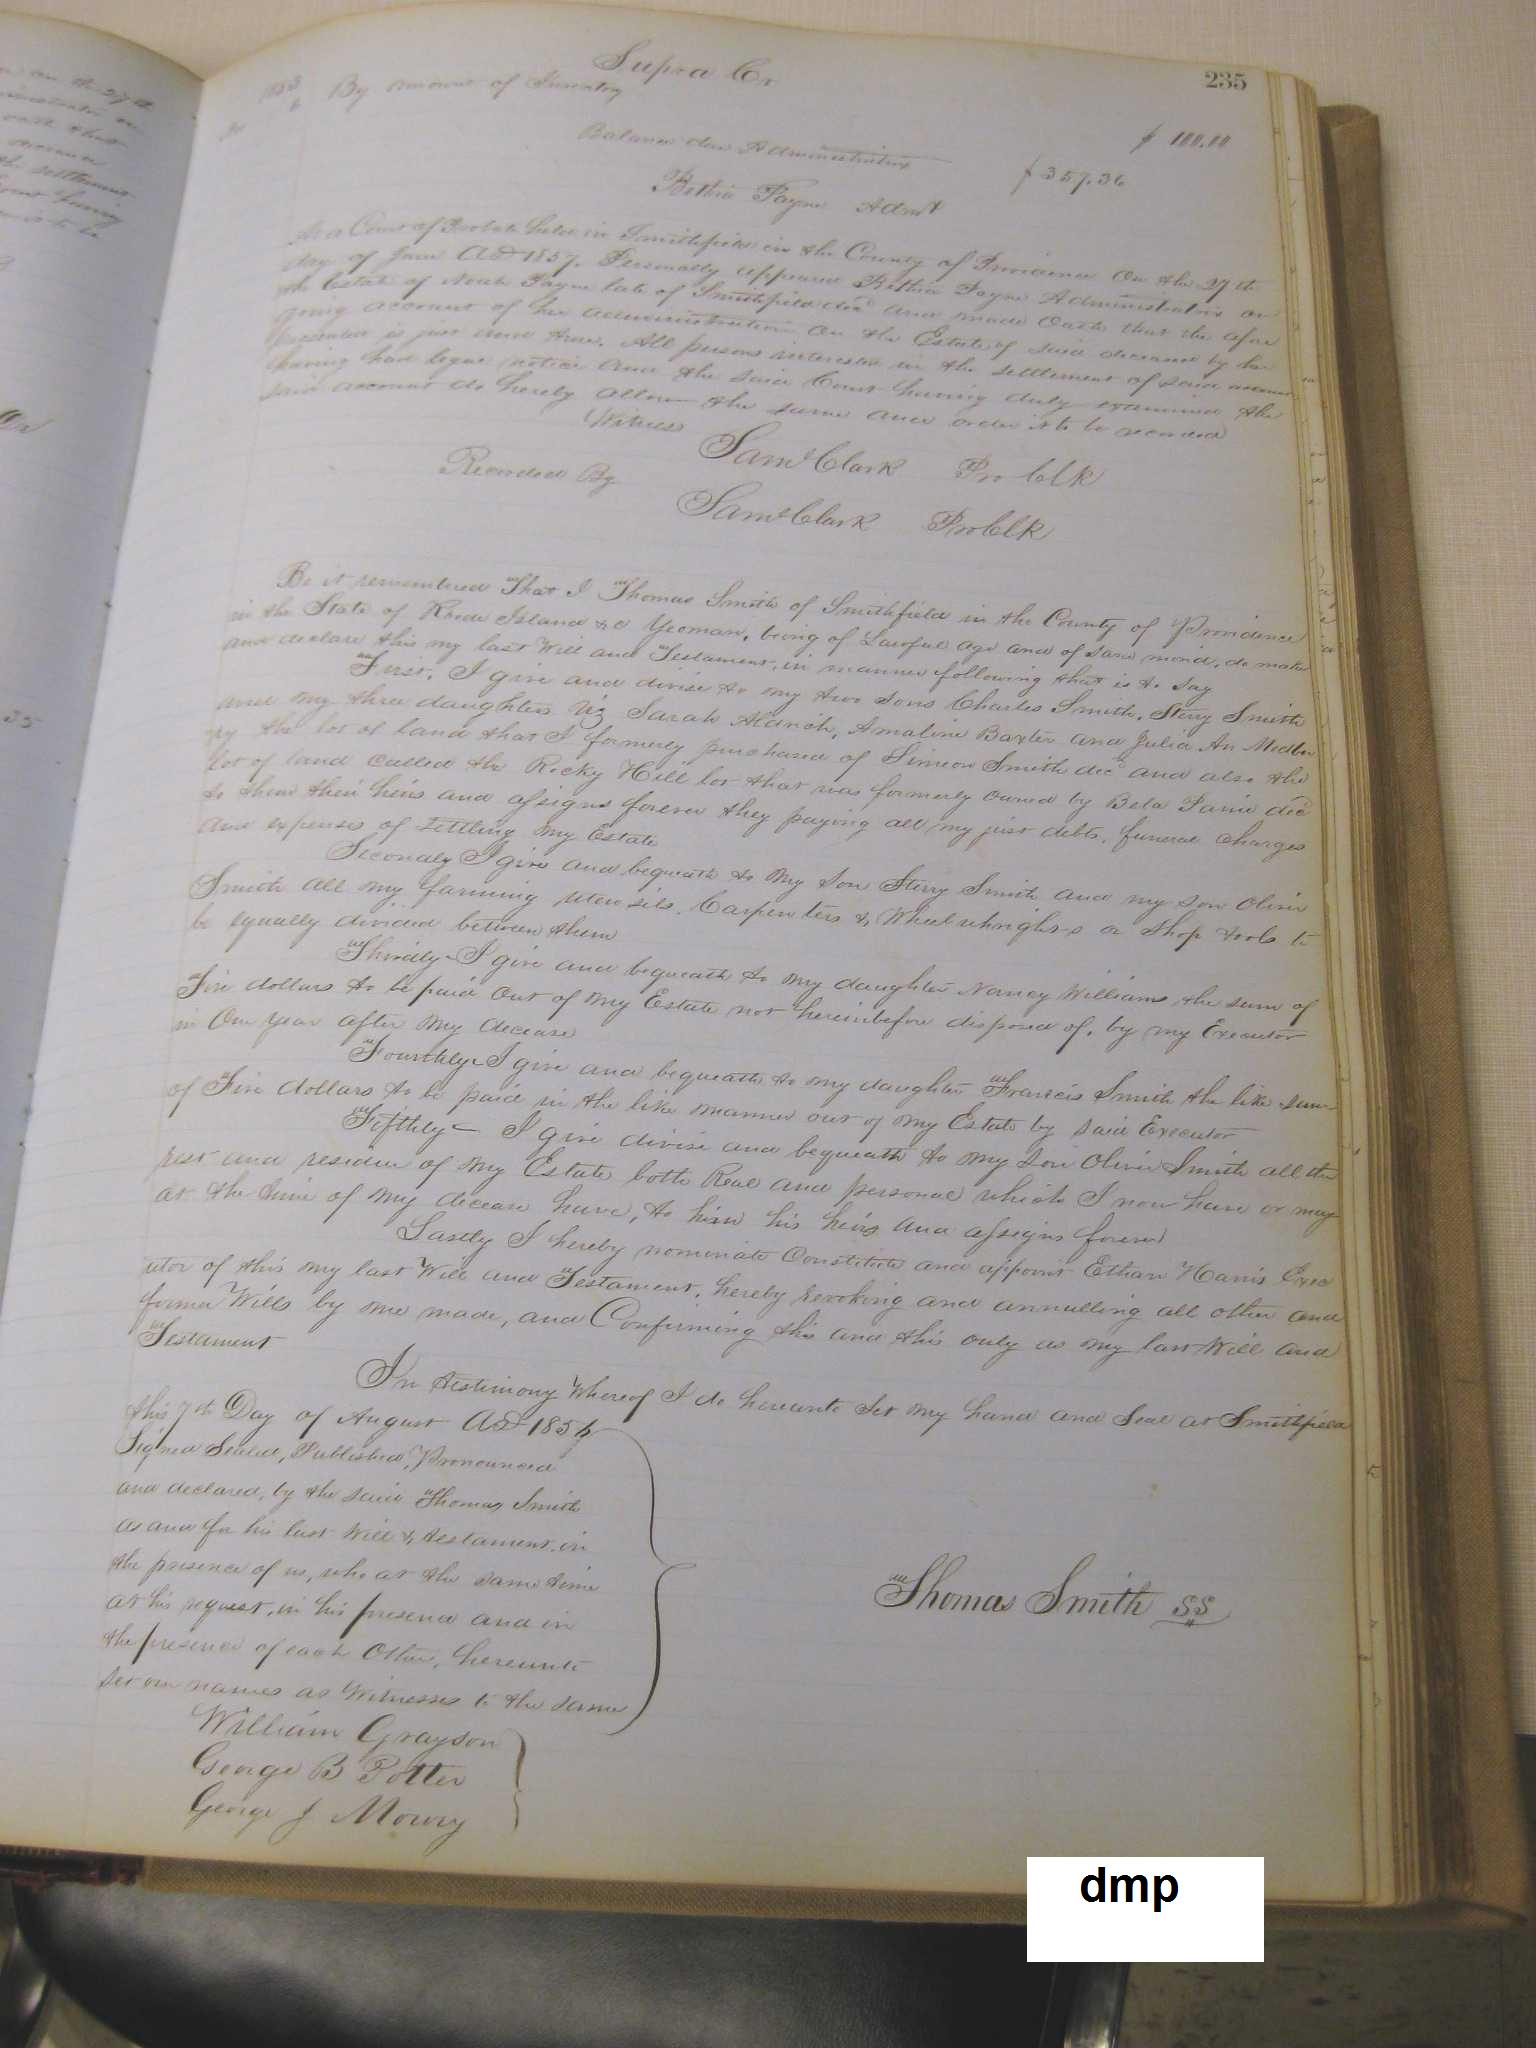 235
Supra Cr
By amount of Inventory
$ 100.00
Balance due Administratrix
$ 357.36
Bethia Payne Admx
At a Court of Probate held in Smithfield in the County of Providence on the 27th
day of June AD 1857. Personally appeared Bethia Payne Administratrix on
the Estate of Noah Payne late of Smithfield decd and made Oath that the afore
going account of her administration on the Estate of said deceased by her
presented is just and true. All persons interested in the settlement of said account
having had legal notice and the said Court having duly examined the
said account do hereby allow the same and order it to be recorded
Witness
Saml Clark Pro Clk
Recorded By
Saml Clark Pro Clk
Be it remembered That I Thomas Smith of Smithfield in the County of Providence
in the State of Rhode Island &c Yeoman, being of Lawful age and of sane mind, do make
and declare this my last Will and Testament, in manner following that is to say
First, I give and divise to my two sons Charles Smith, Sterry Smith
and my three daughters Viz Sarah Aldrich, Amaline Baxter and Julia An Medbu
ry the lot of land that I formerly purchased of Simeon Smith decd and also the
lot of land called the Rocky Hill lot that was formerly owned by Bela Paine decd
to them their heirs and assigns forever they paying all my just debts, funeral charges
and expenses of settling my Estate
Secondly I give and bequeath to my Son Sterry Smith and my son Oliver
Smith all my farming utensils, Carpenters & Wheelwhrights or Shop tools to
be equally divided between them
Thirdly I give and bequeath to my daughter Nancy Williams the sum of
Five dollars to be paid out of my Estate not hereinbefore disposed of, by my Executor
in One year after my decease
Fourthly I give and bequeath to my daughter Francis Smith the like sum
of Five dollars to be paid in the like manner out of my Estate by said Executor
Fifthly I give divise and bequeath to my Son Oliver Smith all the
rest and residue of my Estate both Real and personal which I now have or may
at the time of my decease have, to him his heirs and assigns forever
Lastly I hereby nominate Constitute and appoint Ethan Harris Exec
utor of this my last Will and Testament, hereby revoking and annulling all other and
former Wills by me made, and Confirming this and this only as my last Will and
Testament
In testimony Whereof I do hereunto Set my hand and Seal at Smithfield
this 7th Day of August AD 1854
Signed Sealed, Published, Pronounced
and declared, by the said Thomas Smith
as and for his last Will & testament, in
the presence of us, who at the same time
at his request, in his presence and in
the presence of each Other, hereunto
set our names as Witnesses to the same
Thomas Smith SS
William Grayson
George B Potter
George J Mowry
dmp